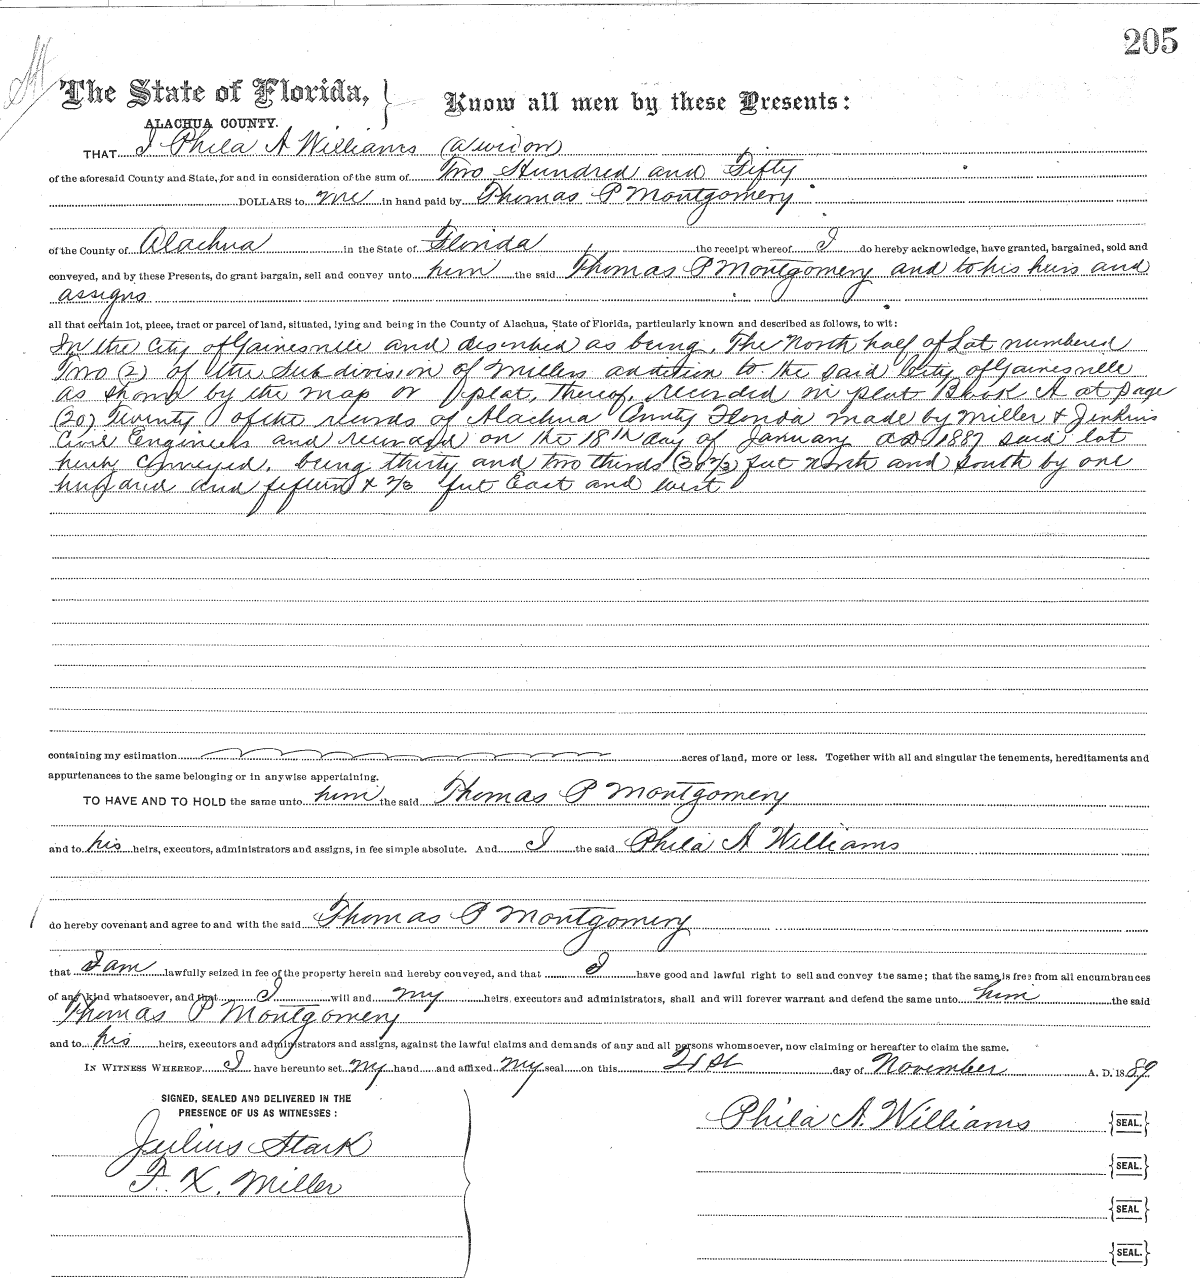 205
The State of Florida,
ALACHUA COUNTY.
Know all men by these Presents:
THAT I Phila A Williams (a widow)
of the aforesaid County and State, for and in consideration of the sum of Two Hundred and Fifty
DOLLARS to me in hand paid by Thomas P Montgomery
of the County of Alachua in the State of Florida the receipt whereof I do hereby acknowledge, have granted, bargained, sold and
conveyed, and by these Presents, do grant bargain, sell and convey unto him the said Thomas P Montgomery and to his heirs and
assigns
all that certain lot, piece, tract or parcel of land, situated, lying and being in the County of Alachua, State of Florida, particularly known and described as follows, to wit:
In the City of Gainesville and described as being, The North half of Lot numbered
Two (2) of the Sub division of Millers addition to the said City of Gainesville
as shown by the map or plat, thereof, recorded in plat Book A at page
(20) Twenty of the records of Alachua County Florida made by Miller & Jenkins
Civil Engineers and recorded on the 18th day of January AD 1887 said lot
hereby conveyed, being thirty and two thirds (30 2/3) feet north and south by one
hundred and fifteen & 2/3 feet East and west
containing my estimation acres of land, more or less. Together with all and singular the tenements, hereditaments and
appurtenances to the same belonging or in anywise appertaining.
TO HAVE AND TO HOLD the same unto him the said Thomas P Montgomery
and to his heirs, executors, administrators and assigns, in fee simple absolute. And I the said Phila A Williams
do hereby covenant and agree to and with the said Thomas P Montgomery
that I am lawfully seized in fee of the property herein and hereby conveyed, and that I have good and lawful right to sell and convey the same; that the same is free from all encumbrances
of any kind whatsoever, and that I will and my heirs, executors and administrators, shall and will forever warrant and defend the same unto him the said
Thomas P Montgomery
and to his heirs, executors and administrators and assigns, against the lawful claims and demands of any and all persons whomsoever, now claiming or hereafter to claim the same.
IN WITNESS WHEREOF I have hereunto set my hand and affixed my seal on this 21st day of November A. D. 1889
SIGNED, SEALED AND DELIVERED IN THE
PRESENCE OF US AS WITNESSES:
Julius Stark
F. X. Miller
Phila A. Williams SEAL.
SEAL.
SEAL
SEAL.